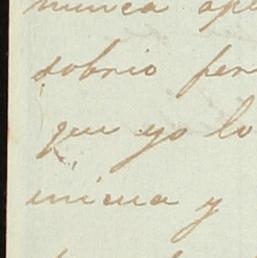 nunca ape
sobrio per
que yo lo
inicua y